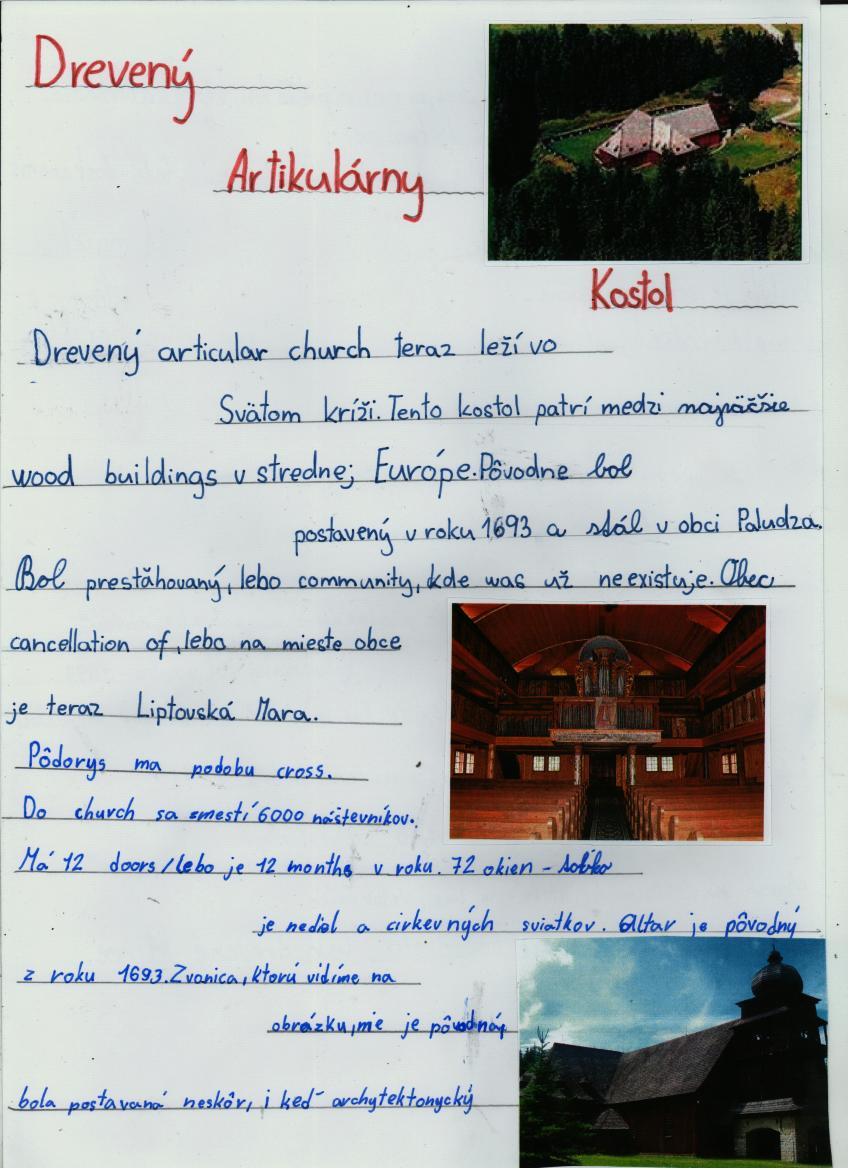 Drevený
Artikulárny
Kostol
Drevený articular church teraz leží vo
Svätom kríži. Tento kostol patrí medzi najväčšie
wood buildings v strednej Európe. Pôvodne bol
postavený v roku 1693 a stál v obci Paludza.
Bol prestăhovaný, lebo community, kde was už neexistuje. Obec
cancellation of, lebo na mieste obce
je teraz Liptovská Mara.
Pôdorys ma podobu cross.
Do church sa zmestí 6000 náštevníkov.
Má 12 doors/lebo je 12 months v roku. 72 okien - tolko
je nedieľ a cirkevných sviatkov. Oltar je pôvodný
z roku 1693. Zvonica, ktorú vidíme na
obrázku, nie je pôvodná,
bola postavaná neskôr, i keď archytektonycký